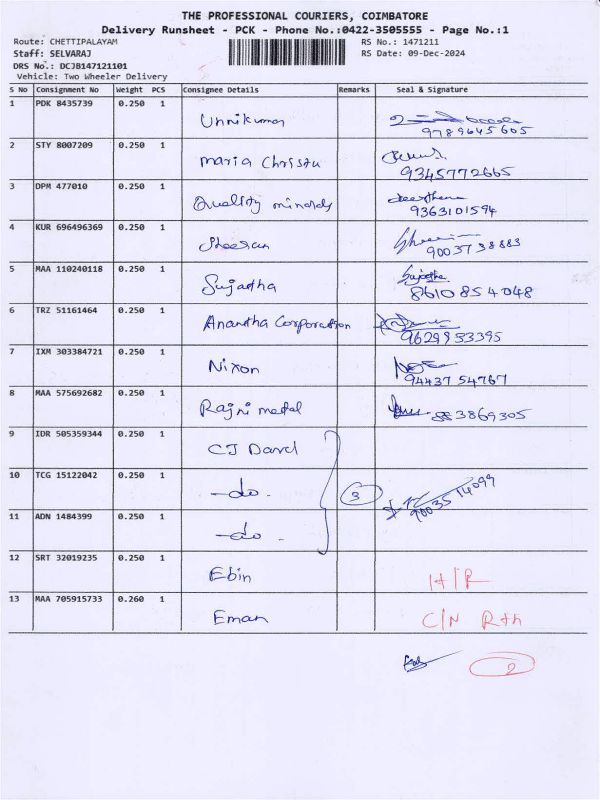 THE PROFESSIONAL COURIERS, COIMBATORE
Delivery Runsheet - PCK - Phone No.:0422-3505555 - Page No.:1
Route: CHETTIPALAYAM RS No.: 1471211
Staff: SELVARAJ RS Date: 09-Dec-2024
DRS No.: DCJB147121101
Vehicle: Two Wheeler Delivery
S No Consignment No Weight PCS Consignee Details Remarks Seal & Signature
1 PDK 8435739 0.250 1 Unnikumar
9789645605
2 STY 8007209 0.250 1 Maria Chrissu
9345772665
3 DPM 477010 0.250 1 Quality minards
9363101594
4 KUR 696496369 0.250 1 Sheeran
9003738883
5 MAA 110240118 0.250 1 Sujatha Sujatha
8610854048
6 TRZ 51161464 0.250 1 Anantha Corporation
9629933395
7 IXM 303384721 0.250 1 Nixon
9443754767
8 MAA 575692682 0.250 1 Rajni metal
9 IDR 505359344 0.250 1 CJ David
10 TCG 15122042 0.250 1 -do. 3 9003514099
11 ADN 1484399 0.250 1 -do.
12 SRT 32019235 0.250 1 Ebin H/R
13 MAA 705915733 0.260 1 Eman C/N Rth
2